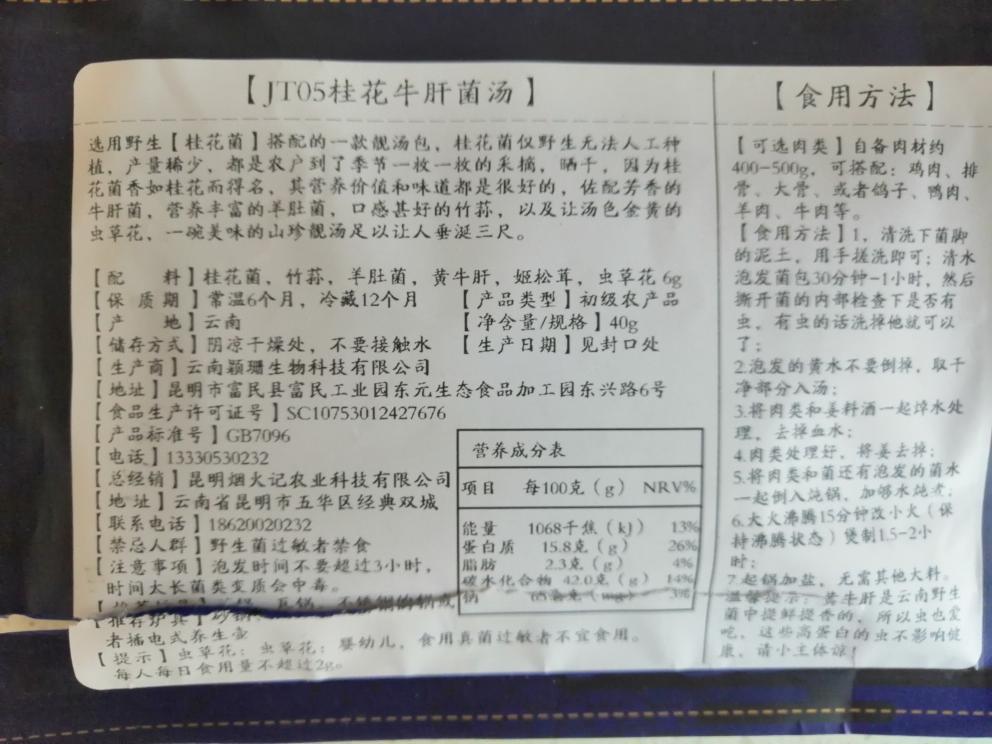 【JT05桂花牛肝菌汤】
选用野生【桂花菌】搭配的一款靓汤包，桂花菌仅野生无法人工种
植，产量稀少，都是农户到了季节一枚一枚的采摘，晒干，因为桂
花菌香如桂花而得名，其营养价值和味道都是很好的，佐配芳香的
牛肝菌，营养丰富的羊肚菌，口感甚好的竹荪，以及让汤色金黄的
虫草花，一碗美味的山珍靓汤足以让人垂涎三尺。
【配 料】桂花菌，竹荪，羊肚菌，黄牛肝，姬松茸，虫草花 6g
【保 质 期】常温6个月，冷藏12个月
【产品类型】初级农产品
【产 地】云南
【净含量/规格】40g
【储存方式】阴凉干燥处，不要接触水
【生产日期】见封口处
【生产商】云南颖珊生物科技有限公司
【地址】昆明市富民县富民工业园东元生态食品加工园东兴路6号
【食品生产许可证号】SC10753012427676
【产品标准号】GB7096
【电话】13330530232
【总经销】昆明烟火记农业科技有限公司
【地 址】云南省昆明市五华区经典双城
【联系电话】18620020232
【禁忌人群】野生菌过敏者禁食
【注意事项】泡发时间不要超过3小时，
时间太长菌类变质会中毒。
【推荐炉具】砂锅，瓦锅，不锈钢的锅或
者插电式养生壶
【提示】虫草花：婴幼儿，食用真菌过敏者不宜食用。
每人每日食用量不超过2g。
营养成分表
项目 每100克（g） NRV%
能量 1068千焦（kj） 13%
蛋白质 15.8克（g） 26%
脂肪 2.3克（g） 4%
碳水化合物 42.0克（g） 14%
钠 65毫克（mg） 3%
【食用方法】
【可选肉类】自备肉材约
400-500g，可搭配：鸡肉、排
骨、大骨、或者鸽子、鸭肉、
羊肉、牛肉等。
【食用方法】1，清洗下菌脚
的泥土，用手搓洗即可；清水
泡发菌包30分钟-1小时，然后
撕开菌的内部检查下是否有
虫，有虫的话洗掉他就可以
了；
2.泡发的黄水不要倒掉，取干
净部分入汤；
3.将肉类和姜料酒一起焯水处
理，去掉血水；
4.肉类处理好，将姜去掉；
5.将肉类和菌还有泡发的菌水
一起倒入炖锅，加够水炖煮；
6.大火沸腾15分钟改小火（保
持沸腾状态）煲制1.5-2小
时；
7.起锅加盐，无需其他大料。
温馨提示：黄牛肝是云南野生
菌中提鲜提香的，所以虫也爱
吃，这些高蛋白的虫不影响健
康，请小主体谅！